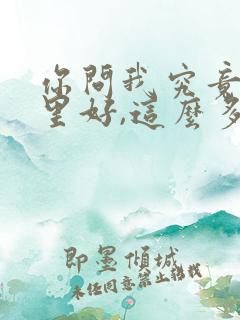 你問我究竟
里好,這麼多
即墨傾城
未任同意禁止轉載